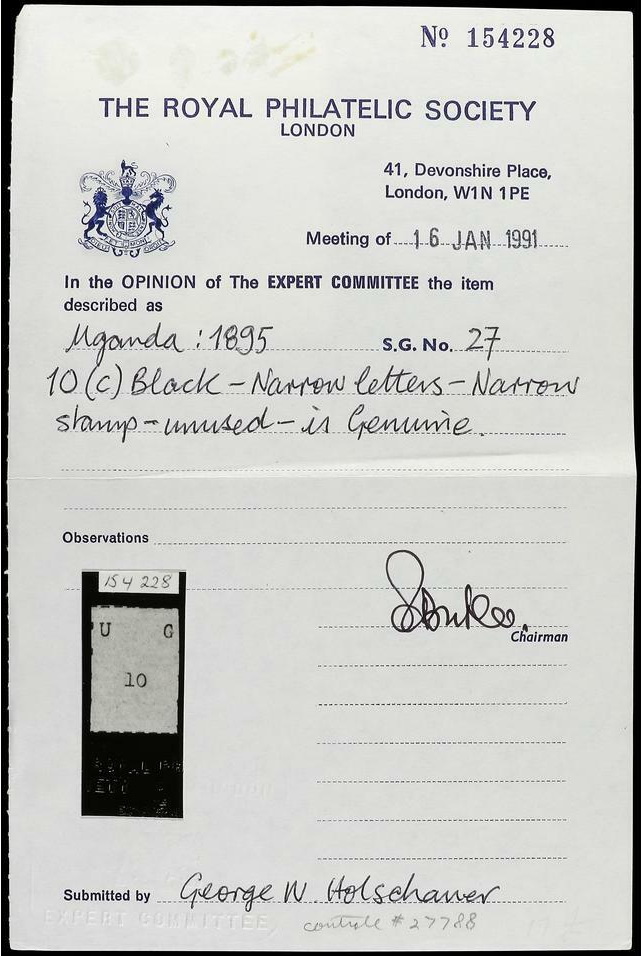 Nº 154228
THE ROYAL PHILATELIC SOCIETY
LONDON
41, Devonshire Place,
London, W1N 1PE
Meeting of 16 JAN 1991
In the OPINION of The EXPERT COMMITTEE the item
described as
Uganda : 1895 S.G. No. 27
10 (c) Black - Narrow letters - Narrow
stamp - unused - is Genuine.
Observations
154 228
U G
10
Chairman
ROYAL
Submitted by George W. Holschauer
EXPERT COMMITTEE
controle # 27788